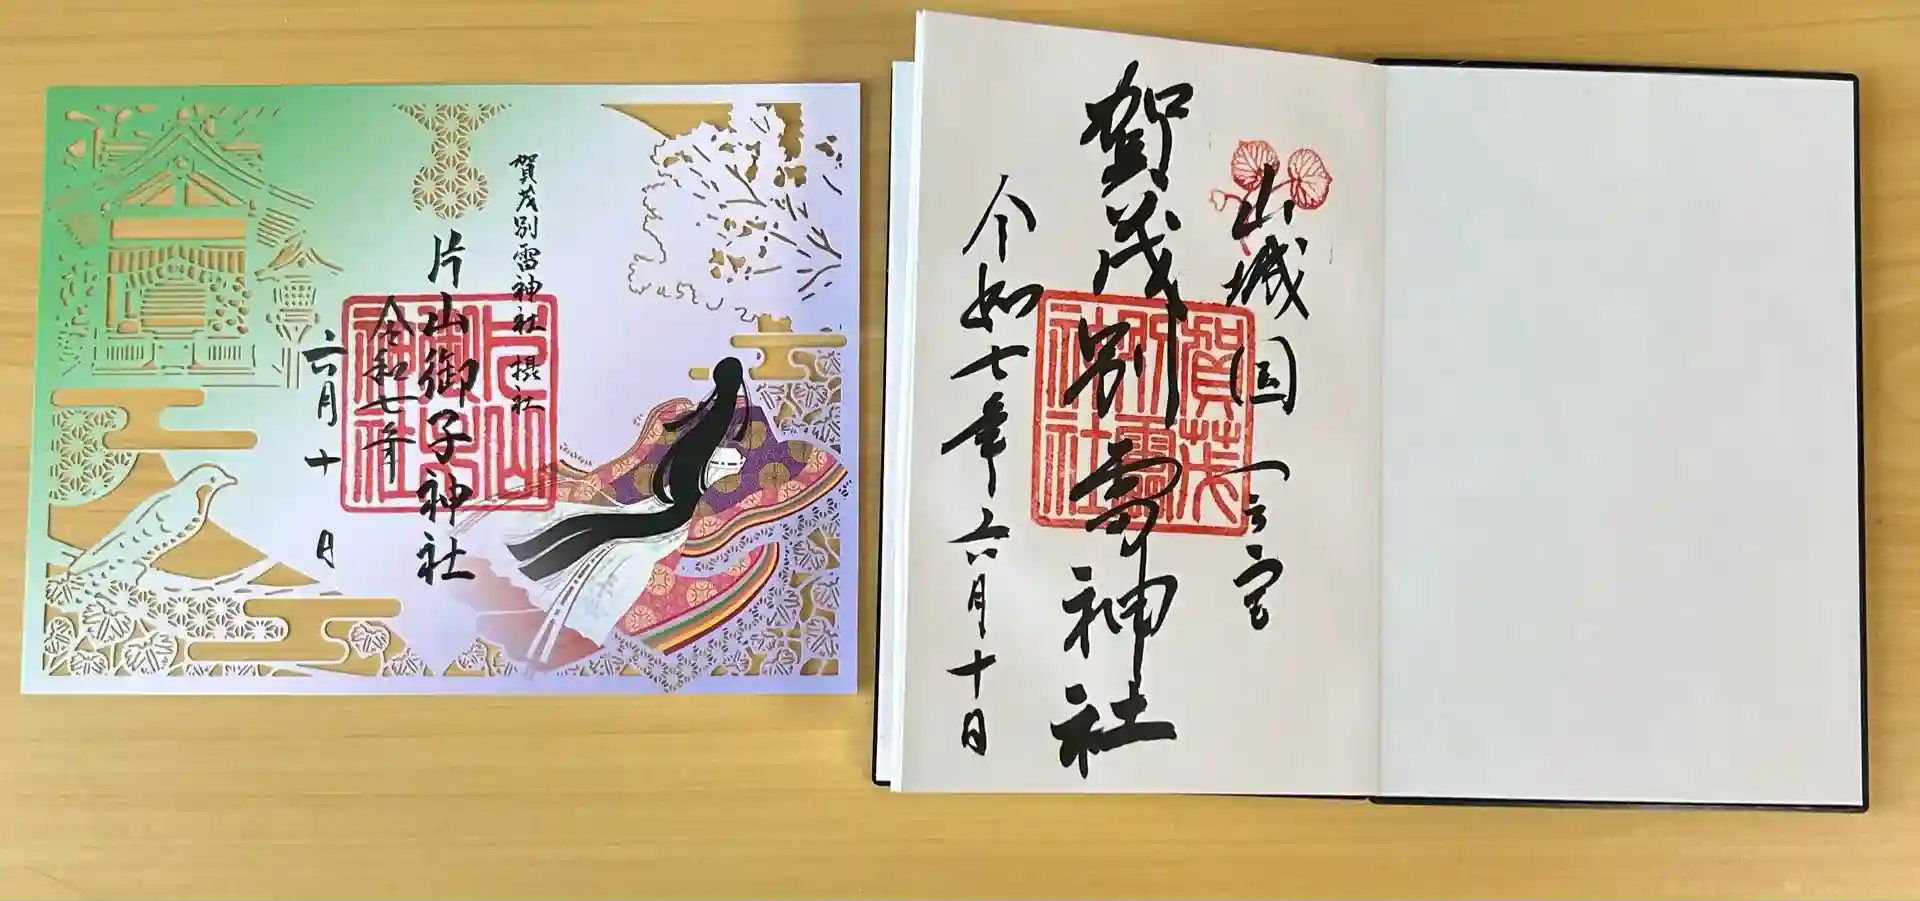 賀茂別雷神社 摂社
片山御子神社
令和七年
六月十日
片山
御子
神社
山城国一之宮
賀茂別雷神社
令和七年六月十日
賀茂
別雷
神社